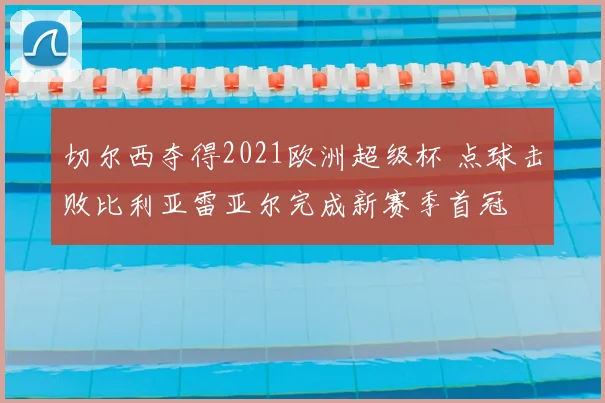 切尔西夺得2021欧洲超级杯 点球击
败比利亚雷亚尔完成新赛季首冠